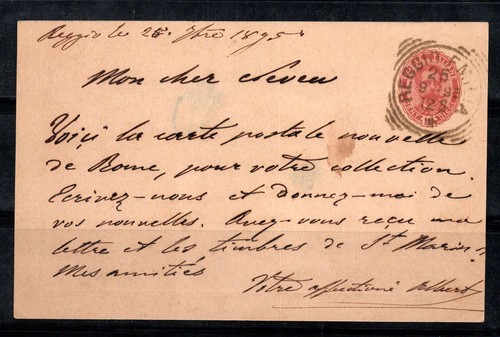 Reggio le 26 7bre 1895
Mon cher neveu
REGGIO EMILIA
26
9-9
12 S
Voiçi la carte postale nouvelle
de Rome, pour votre collection.
Ecrivez-nous et donnez-moi de
vos nouvelles. Avez-vous reçu ma
lettre et les timbres de St Marin.
Mes amitiés
Votre affectioné Albert